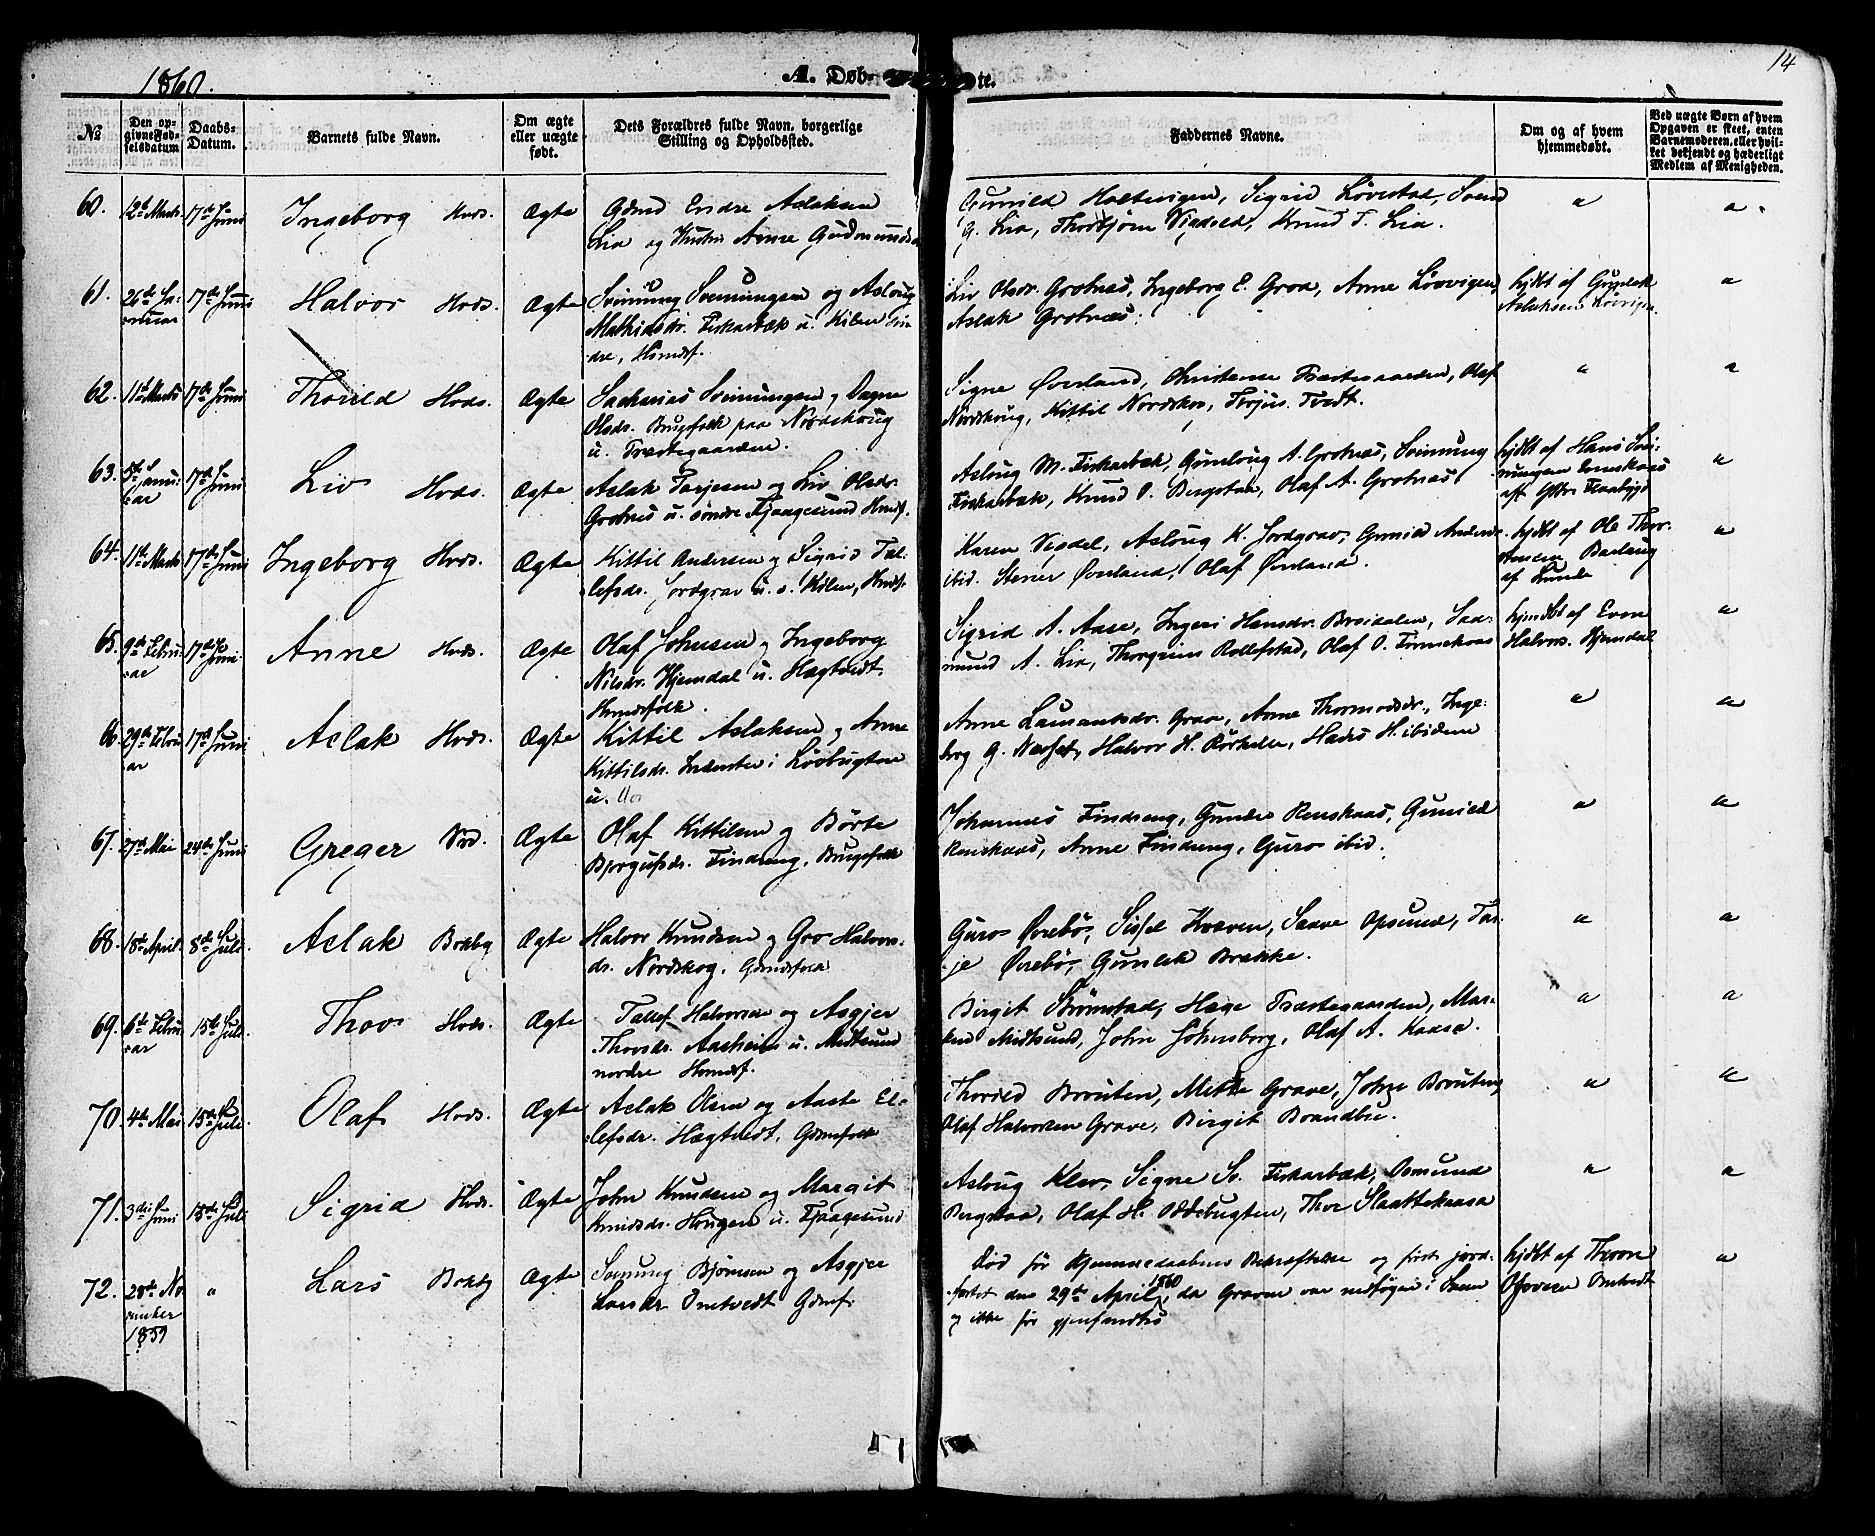 1860.
A. Døb
te.
14
No
Den opgivne Fødselsdatum
Daabs-Datum.
Barnets fulde Navn.
Om ægte eller uægte født.
Dets Forældres fulde Navn, borgerlige Stilling og Opholdssted.
Faddernes Navne.
Om og af hvem hjemmedøbt.
Ved uægte Børn af hvem Opgaven er skeet, enten Barnemoderen, eller hvilket bekjendt og hæderligt Medlem af Menigheden.
60. 12te Marts 17de Juni Ingeborg Hvds. Ægte Gdmd Endre Aslaksen
Lia og Hustru Anne Gudmundsd
Gunild Holtvigen, Sigrid Løvestad, Svend
G. Lia, Thorbjørn Vigdeld, Knud T. Lia.
" "
61. 26de Januar 17de Juni Halvor Hvds. Ægte Svinung Svenungsen og Aslaug
Mathiasdr. Fiskarbæk u. Kilen søndre, Hsmdsf.
Liv Olsdr. Grotnæs, Ingeborg E. Groa, Anne Løvvigen,
Aslak Grotnæs.
hjdbt af Gunlek
Aslaksen Løvvigen
"
62. 11te Marts 17de Juni Thorild Hvds. Ægte Sacharias Svinungsen og Dagne
Olsdr. Brugsfolk paa Nordskoug
u. Præstegaarden.
Signe Øverland, Christense Præstegaarden, Olaf
Nordskoug, Kittil Nordskou, Terjus Tvedt.
" "
63. 5te Januar 17de Juni Liv Hvds. Ægte Aslak Tarjesen og Liv Olsdr.
Grotnæs u. søndre Fjaagesund Hmdsf.
Aslaug M. Fiskarbæk, Gunloug A. Grotnæs, Svinung
Fiskarbæk, Knud O. Bergstaa, Olaf A. Grotnæs
hjdbt af Hans Svinungsen
aft Ytre Flaabygd
"
64. 11te Marts 17de Juni Ingeborg Hvds. Ægte Kittil Andersen og Sigrid Tallefsdr. Jordgrav u. s. Kilen, Hmdsf.
Karen Vigdel, Aslaug K. Jordgrav, Gunild Andersd.
ibid. Stener Øverland, Olaf Øverland.
hjdbt af Ole Thorstensen Baslaug
af Lunde
"
65. 9de Februar 17de Juni Anne Hvds. Ægte Olaf Johnsen og Ingeborg
Nilsdr. Hjemdal u. Hægtvedt.
Hmdsfolk.
Sigrid A. Aase, Ingeri Hansdr. Breidalen, Saamund A. Lia, Thorgrim Rollefstad, Olaf O.
hjmdbt af Even
Halvors. Hjemdal
"
66. 29de Februar 17de Juni Aslak Hvds. Ægte Kittil Aslaksen og Anne
Kittilsdr. Inderster i Løvbugten
u.
Anne Lauvantsdr. Graa, Anne Thormodsdr., Ingeborg G. Næset, Halvor H. Rørhelle, H. ibidem
" "
67. 27de Mai 24de Juni Greger Ægte Olaf Kittilsen og Børte
Bjorgufsdr. Findreng, Brugsfolk
Johannes Findreng, Gunder Renskaas, Gunild
Renskaas, Anne Findreng, Guro ibid.
" "
68. 18de April 8de Juli Aslak Bokby Ægte Halvor Knudsen og Gro Halvorsdr. Nordskog, Gdmdsfolk
Guro Øvrebø, Sissel Kvæven, Saave Opsund, Tarje Øvrebø, Gunlek Brekke.
" "
69. 6te Februar 15de Juli Thov Hvds. Ægte Tallef Halvorsen og Asgjer
Thovsdr. Aasheim u. Midtsund
nordre Hsmdsf.
Birgit Strømstad, Hæge Præstegaarden, Marken Midtsund, John Johnsborg, Olaf A. Kaasa.
" "
70. 4de Mai 15de Juli Olaf Hvds. Ægte Aslak Olsen og Aaste Ellefsdr. Hægtvedt, Gdmsfolk
Thorild Brouten, Mette Grave, John Brouten,
Olaf Halvorsen Grave, Birgit Brandbu.
" "
71. 3die Juni 15de Juli Sigrid Hvds. Ægte John Knudsen og Margit
Knudsdr. Hougen u. Fjaagesund
Aslaug Klev, Signe S. Fiskarbæk, Osmund
Bergstaa, Olaf H. Oddebugten, Thor Slaattekaasa
" "
72. 28de November 1859 " Lars Bokby Ægte Svenung Bjørnsen og Asgjer
Larsdr Omtvedt Gdmf.
Død før Hjemmedaabens Bekræftelse og først jordfæstet den 29de April 1860, da Graven var nedføgen i Sneen
og ikke før gjenfandtes
hjdbt af Thorre
Omtvedt
"